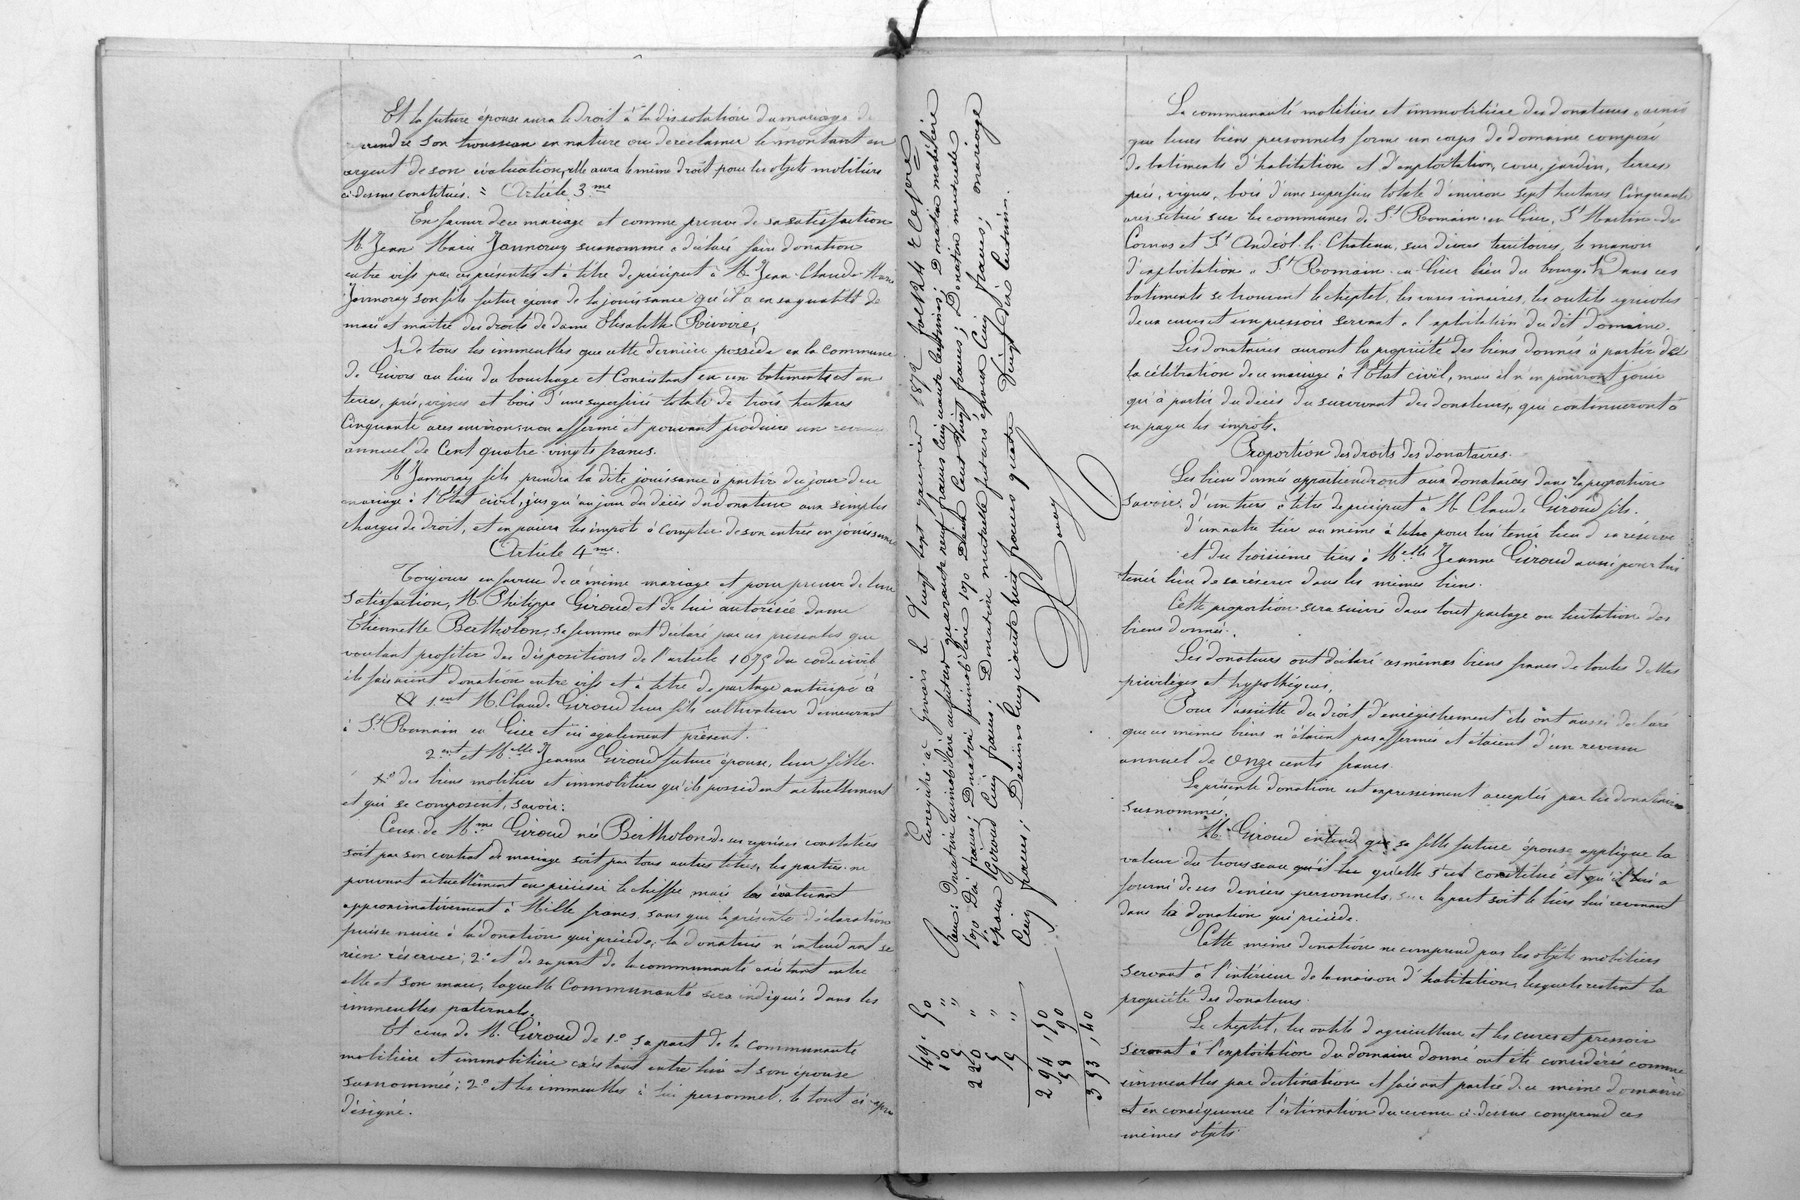 Et la future épouse aura le droit à la dissolution du mariage de
prendre son trousseau en nature ou de réclamer le montant en
argent de son évaluation, elle aura le même droit pour les objets mobiliers
ci-dessus constitués. = Article 3.me
En faveur de ce mariage et comme preuve de sa satisfaction
M. Jean Marie Jannoray susnommé a déclaré faire donation
entre vifs par ces présentes et à titre de préciput à M. Jean-Claude-Marie
Jannoray son fils futur époux de la jouissance qu'il a en sa qualité de
mari et maître des droits de dame Elisabeth Rivoire,
De tous les immeubles que cette dernière possède en la commune
de Givors au lieu du bouchage et Consistant en un batiments et en
terres, prés, vignes et bois d'une superficie totale de trois hectares
Cinquante ares environ non affermé et pouvant produire un revenu
annuel de Cent quatre-vingts francs.
M Jannoray fils prendra la dite jouissance à partir du jour du
mariage à l'Etat civil, jusqu'au jour du décès du donateur aux simples
charges de droit, et en paiera les impots à compter de son entrée en jouissance
Article 4.me
Toujours en faveur de ce même mariage et pour preuve de leur
satisfaction, M. Philippe Giroud et de lui autorisée dame
Etiennette Bertholon, sa femme ont déclaré par ces présentes que
voulant profiter des dispositions de l'article 1075 du code civil
ils faisaient donation entre vifs et à titre de partage anticipé à
1.ent M. Claude Giroud leur fils cultivateur demeurant
à St Romain en Gier et ici également présent.
2.ent et Melle Jeanne Giroud future épouse, leur fille.
des biens mobiliers et immobiliers qu'ils possèdent actuellement
et qui se composent, savoir:
Ceux de Mme Giroud née Bertholon de ses reprises constatées
soit par son contrat de mariage soit par tous autres titres, les parties ne
pouvant actuellement en préciser le chiffre mais les évaluant
approximativement à Mille francs, sans que la présente déclaration
puisse nuire à la donation qui précède, la donatrice n'entendant se
rien réserver; 2.° et de sa part de la communauté existant entre
elle et son mari, laquelle Communauté sera indiquée dans les
immeubles paternels.
Et ceux de M. Giroud de 1.° sa part de la Communauté
mobilière et immobilière existant entre lui et son épouse
susnommée; 2.° et les immeubles à lui personnel. le tout ci-après
désigné.
Enregistré à Givors le Vingt sept janvier 1872 folio 24
Reçu: Donation immobilière au futur quarante neuf francs cinquante centimes; Donation mobilière
1070 Dix francs; Donation immobilière 1070 Deux Cent Vingt francs; Donation mutuelle
époux Giroud Cinq francs; Donation mutuelle futurs époux Cinq francs; mariage
Cinq francs; Décimes Cinquante huit francs quatre Vingt dix Centimes.
49,50
10 "
5 "
220 "
5 "
294,50
58 90
353,40
La communauté mobilière et immobilière des donateurs ainsi
que leurs biens personnels forme un corps de domaine composé
de batiments d'habitation et d'exploitation, cour, jardin, terres
pré, vignes, bois d'une superficie totale d'environ sept hectares Cinquante
ares situé sur les communes de St Romain-en-Gier, St Martin-de
Cornas et St Andéol-le-Chateau, sur divers territoires, le manoir
d'exploitation à St Romain-en-Gier lieu du bourg. Dans ces
batiments se trouvent le cheptel, les vases vinaires, les outils agricoles
deux cuves et un pressoir servant à l'exploitation du dit domaine.
Les donataires auront la propriété des biens donnés à partir de
la célébration de ce mariage à l'Etat civil, mais il n'en pourront jouir
qu'à partir du décès du survivant des donateurs, qui continueront à
en payer les impots.
Proportion des droits des donataires.
Les biens donnés appartiendront aux donataires dans la proportion
savoir: d'un tiers à titre de préciput à M. Claude Giroud fils.
d'un autre tiers au même à titre pour lui tenir lieu de sa réserve
et du troisième tiers à Melle Jeanne Giroud aussi pour lui
tenir lieu de sa réserve dans les mêmes biens.
Cette proportion sera suivie dans tout partage ou licitation des
biens donnés.
Les donateurs ont déclaré ces mêmes biens francs de toutes dettes
privilèges et hypothèques.
Pour l'assiette du droit d'enregistrement ils ont aussi déclaré
que ces mêmes biens n'étaient pas affermés et étaient d'un revenu
annuel de onze cents francs.
La présente donation est expressément acceptée par les donataires
susnommés.
M. Giroud entend que sa fille future épouse applique la
valeur du trousseau qu'elle s'est constitué et qu'il lui a
fourni de ses deniers personnels, sur la part soit le tiers lui revenant
dans la donation qui précède.
Cette même donation ne comprend pas les objets mobiliers
servant à l'intérieur de la maison d'habitation, lesquels restent la
propriété des donateurs.
Le cheptel, les outils d'agriculture et les cuves et pressoir
servant à l'exploitation du domaine donné ont été considérés comme
immeubles par destination et faisant partie de ce même domaine
et en conséquence l'estimation du revenu ci-dessus comprend ces
mêmes objets.